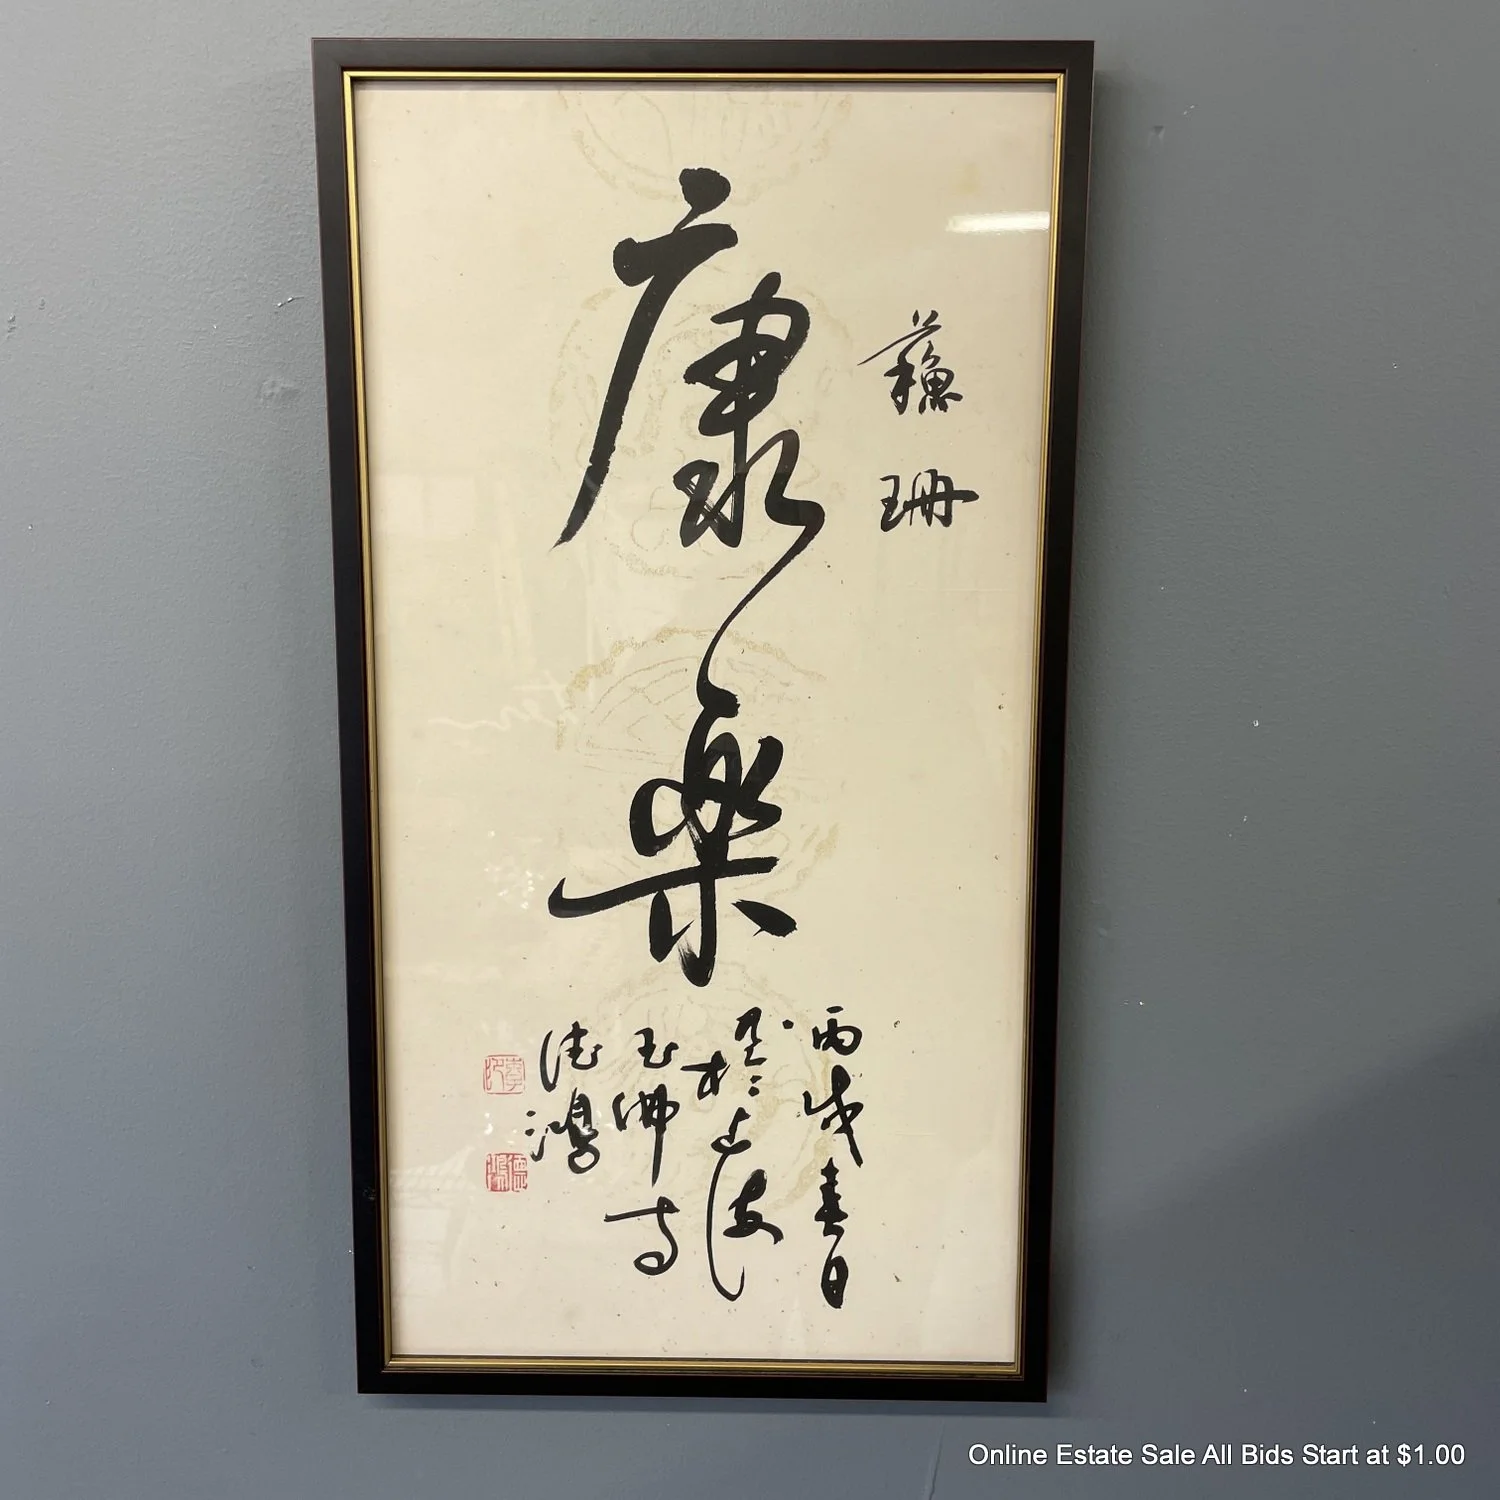 蘓珊
康樂
丙戌春日
书於上海
玉佛寺
德鴻
德鴻
Online Estate Sale All Bids Start at $1.00